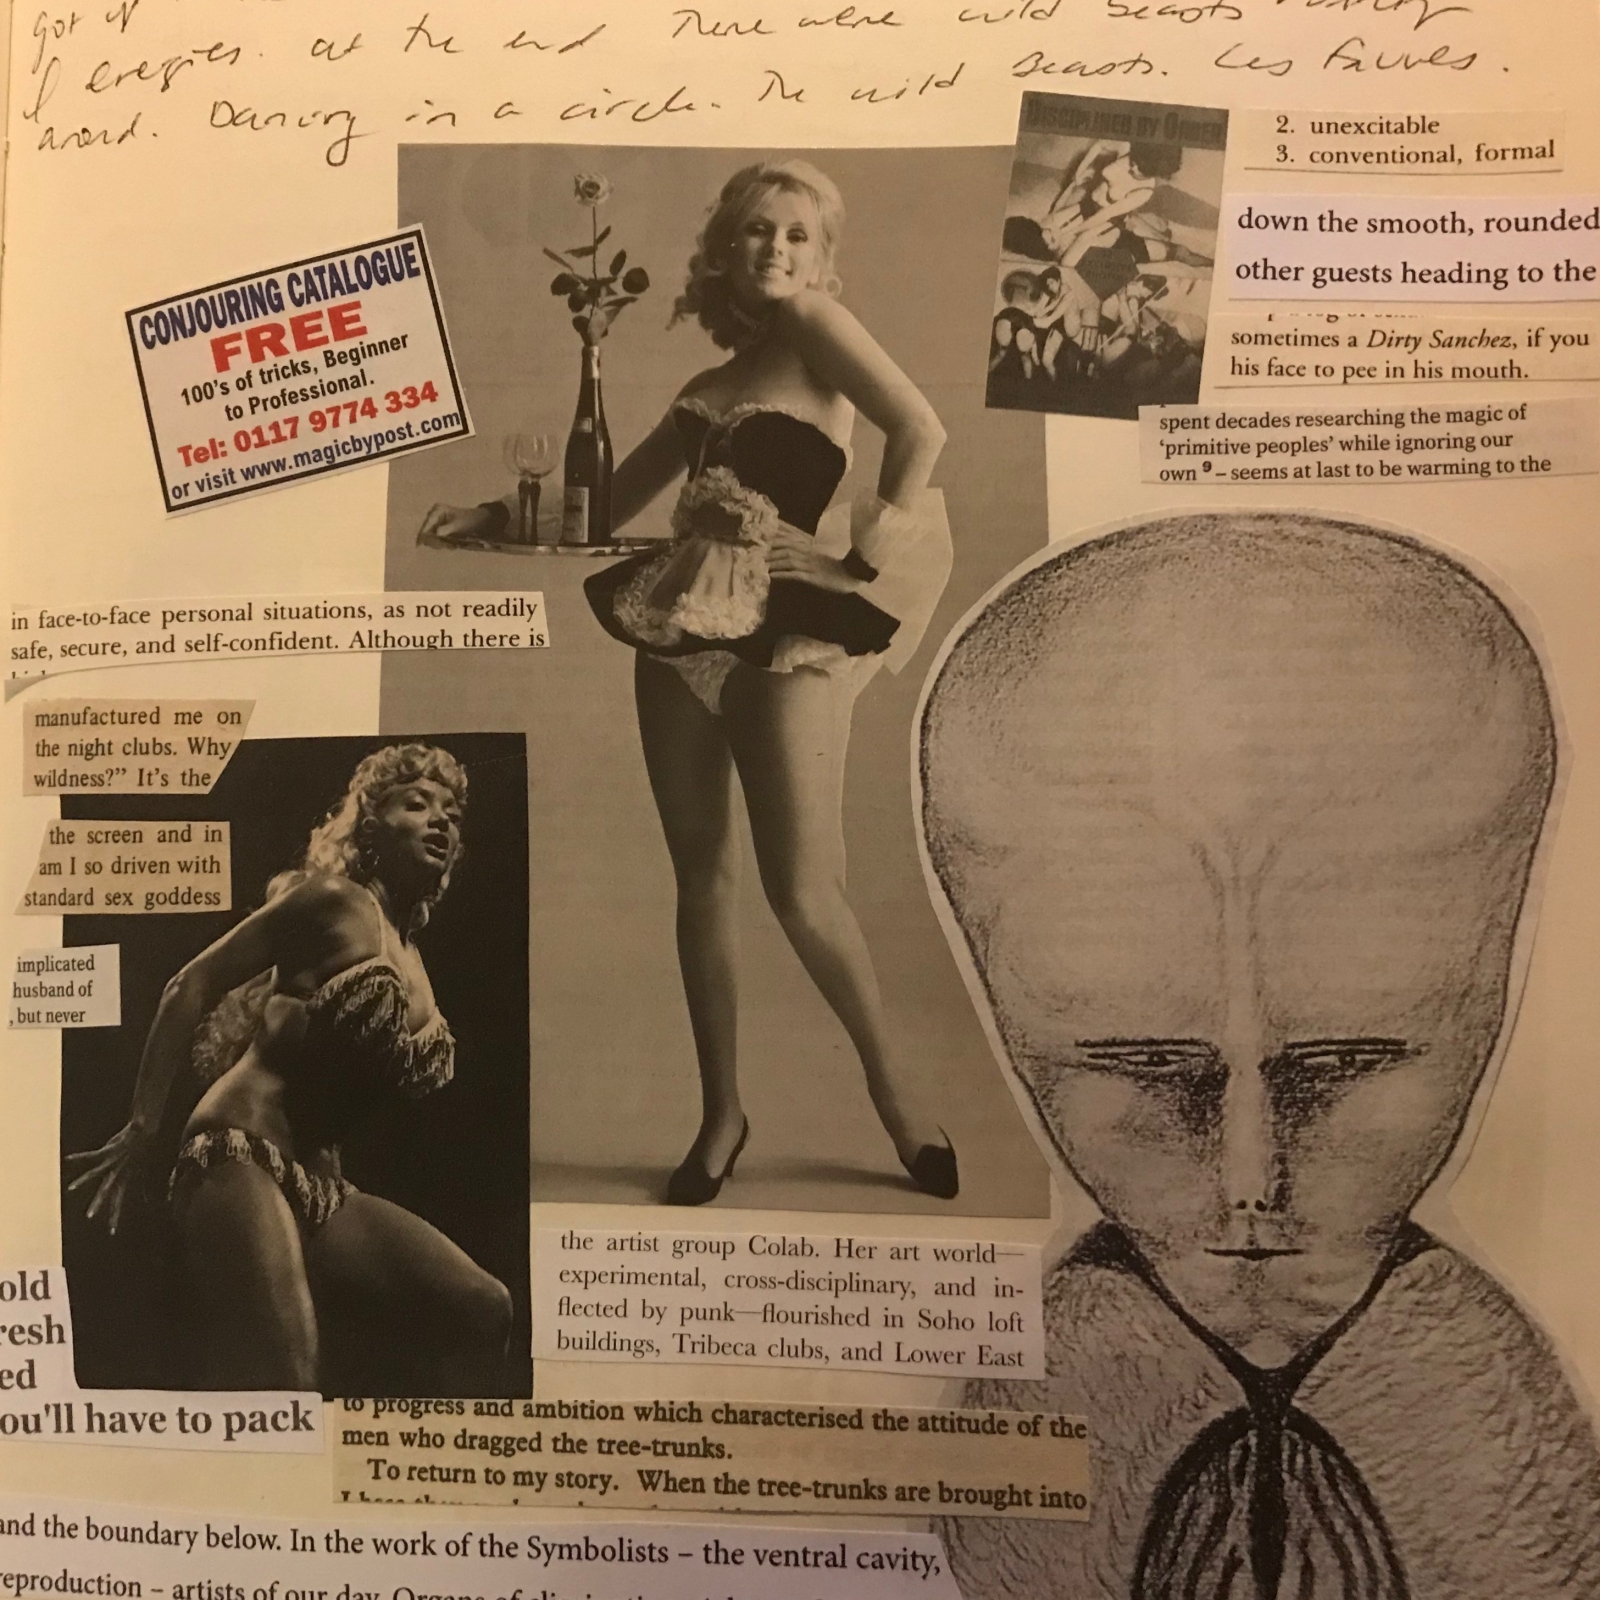 got
energies. at the end There were wild beasts
around. Dancing in a circle. The wild beasts. Les Fauves.
DISCIPLINED BY ORDER
2. unexcitable
3. conventional, formal
down the smooth, rounded
other guests heading to the
sometimes a Dirty Sanchez, if you
his face to pee in his mouth.
spent decades researching the magic of
‘primitive peoples’ while ignoring our
own ⁹ – seems at last to be warming to the
CONJOURING CATALOGUE
FREE
100's of tricks, Beginner
to Professional.
Tel: 0117 9774 334
or visit www.magicbypost.com
in face-to-face personal situations, as not readily
safe, secure, and self-confident. Although there is
manufactured me on
the night clubs. Why
wildness?” It's the
the screen and in
am I so driven with
standard sex goddess
implicated
husband of
, but never
old
resh
ed
ou'll have to pack
the artist group Colab. Her art world—
experimental, cross-disciplinary, and in-
flected by punk—flourished in Soho loft
buildings, Tribeca clubs, and Lower East
to progress and ambition which characterised the attitude of the
men who dragged the tree-trunks.
To return to my story. When the tree-trunks are brought into
and the boundary below. In the work of the Symbolists – the ventral cavity,
eproduction – artists of our day. Organs of